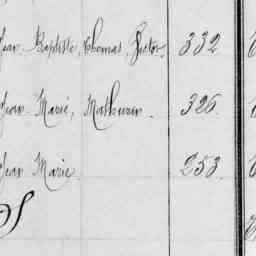 Jean Baptiste, Thomas, Victor 332
Jean Marie, Mathurin 326
Jean Marie 253